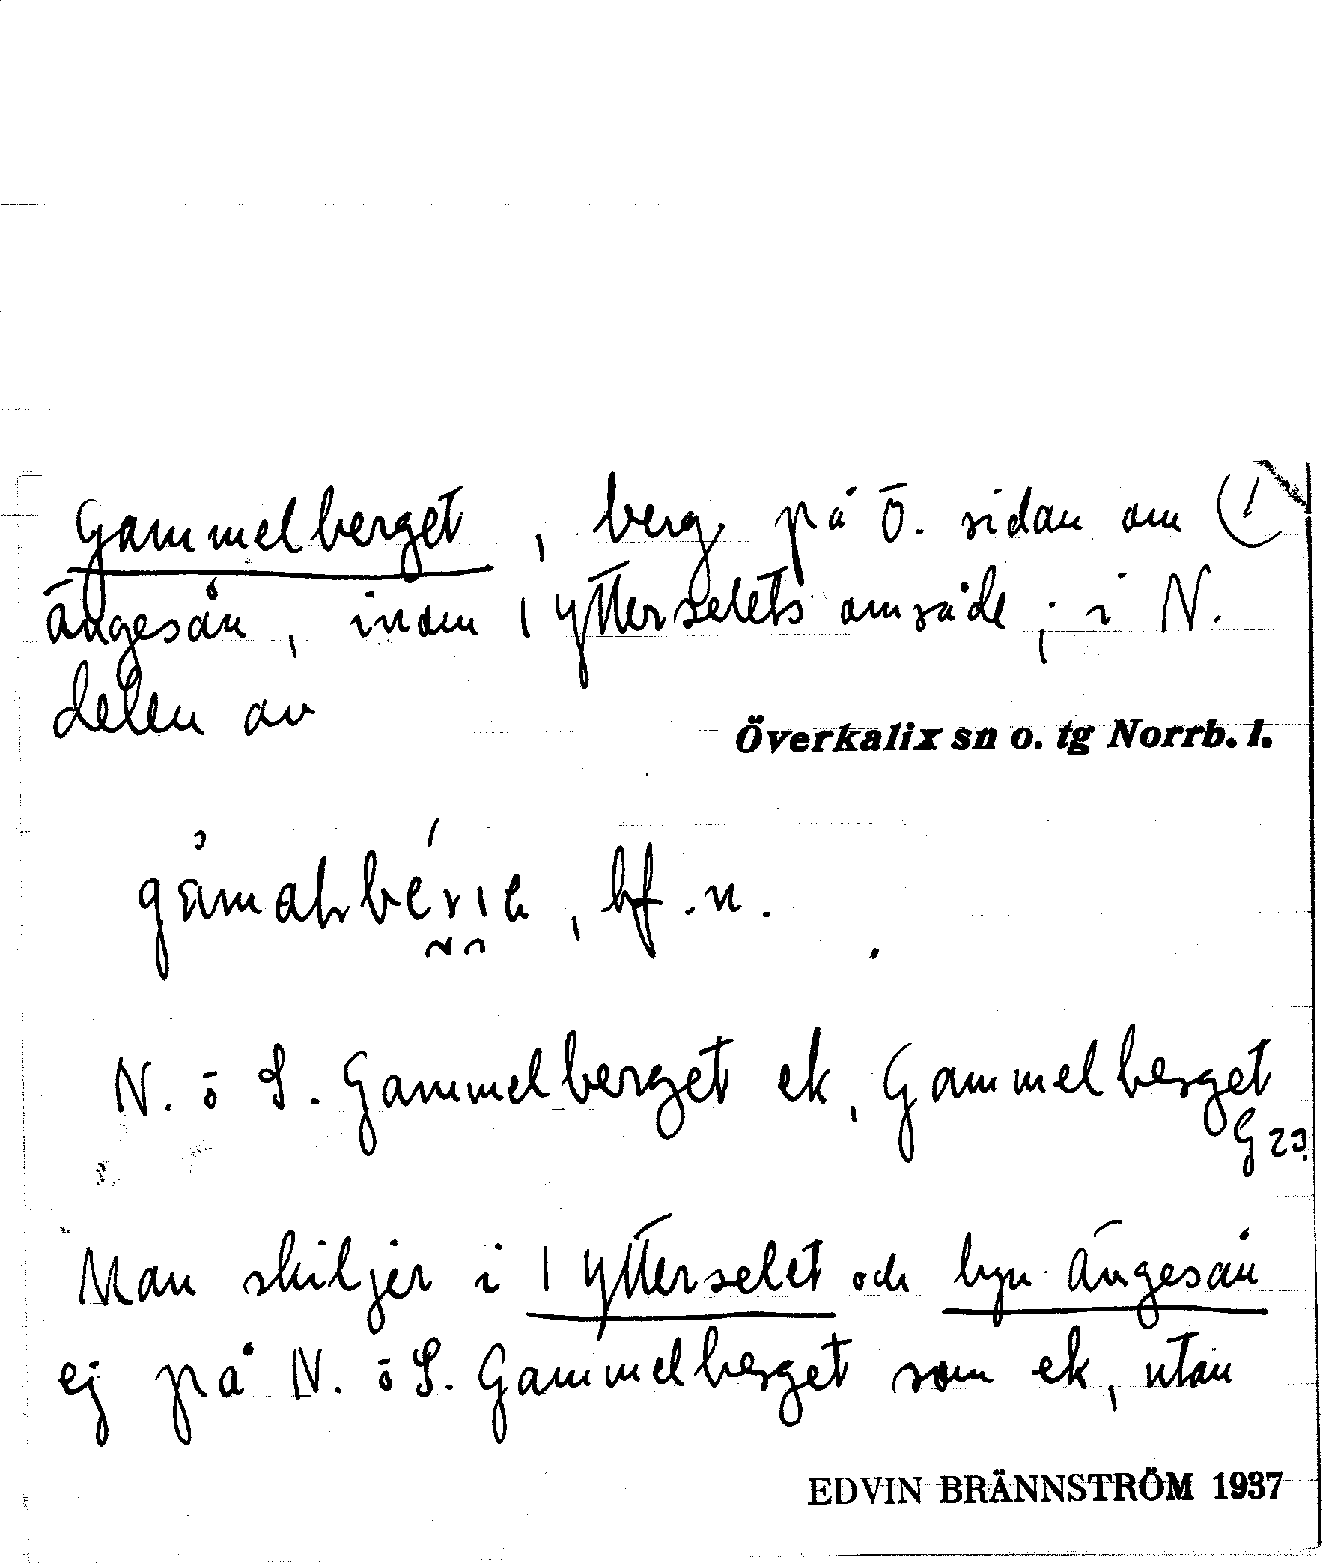 Gammelberget, berg på Ö. sidan om (1
Ängesån, inom Ytterselets område; i N.
delen av
Överkalix sn o. tg Norrb. l.
bf. n.
N. o S. Gammelberget ek, Gammelberget
G 23.
Man skiljer i Ytterselet och byn Ängesån
ej på N. o S. Gammelberget som ek, utan
EDVIN BRÄNNSTRÖM 1937